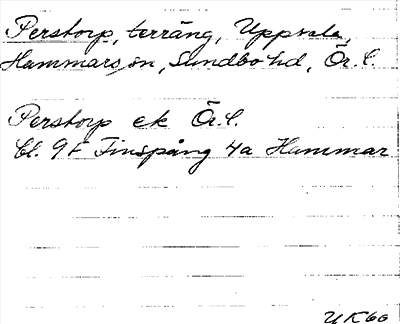 Perstorp, terräng, Uppsala,
Hammars sn, Sundbo hd, Ör. l.
Perstorp ek Ör. l.
bl. 9F Finspång 4a Hammar
UK66